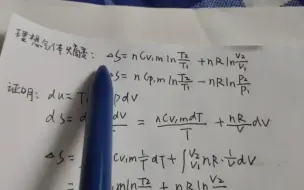 理想气体火商变: ΔS = nCv,m ln T2/T1 + nR ln V2/V1
ΔS = nCp,m ln T2/T1 − nR ln P2/P1
证明: du = T dV
dS = dV = nCv,m dT/T + nR/V dV
ΔS = Cv,m 1/T dT + ∫V2 V1 nR · 1/V dV
= m ln T2 + nR ln V2